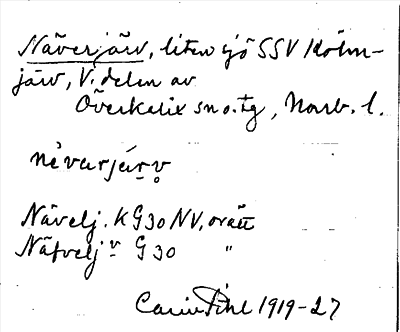 Näverjärv, liten sjö SSV Kölm-
järv, V. delen av
Överkalix sn o. tg, Norrb. l.
nèvarjár̥v̥
Nävelj. KG30 NV, orätt
Näfvelj v G30 "
Carin Pihl 1919-27